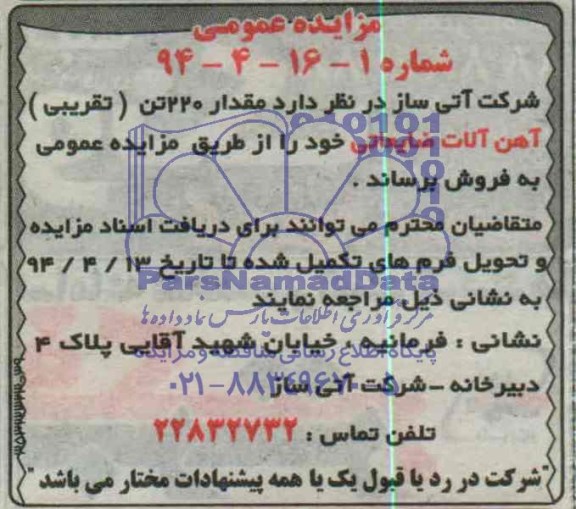 مزایده عمومی
شماره ۱ - ۱۶ - ۴ - ۹۴
شرکت آتی ساز در نظر دارد مقدار ۲۲۰تن ( تقریبی )
آهن آلات ضایعاتی خود را از طریق مزایده عمومی
به فروش برساند .
متقاضیان محترم می توانند برای دریافت اسناد مزایده
و تحویل فرم های تکمیل شده تا تاریخ ۱۳ / ۴ / ۹۴
ParsNamadData
به نشانی ذیل مراجعه نمایند
مرکز فرآوری اطلاعات پارس نماد داده ها
نشانی : فرمانیه ، خیابان شهید آقایی پلاک ۴
پایگاه اطلاع رسانی مناقصه و مزایده
دبیرخانه - شرکت آتی ساز
تلفن تماس : ۲۲۸۳۲۷۳۲
"شرکت در رد یا قبول یک یا همه پیشنهادات مختار می باشد "